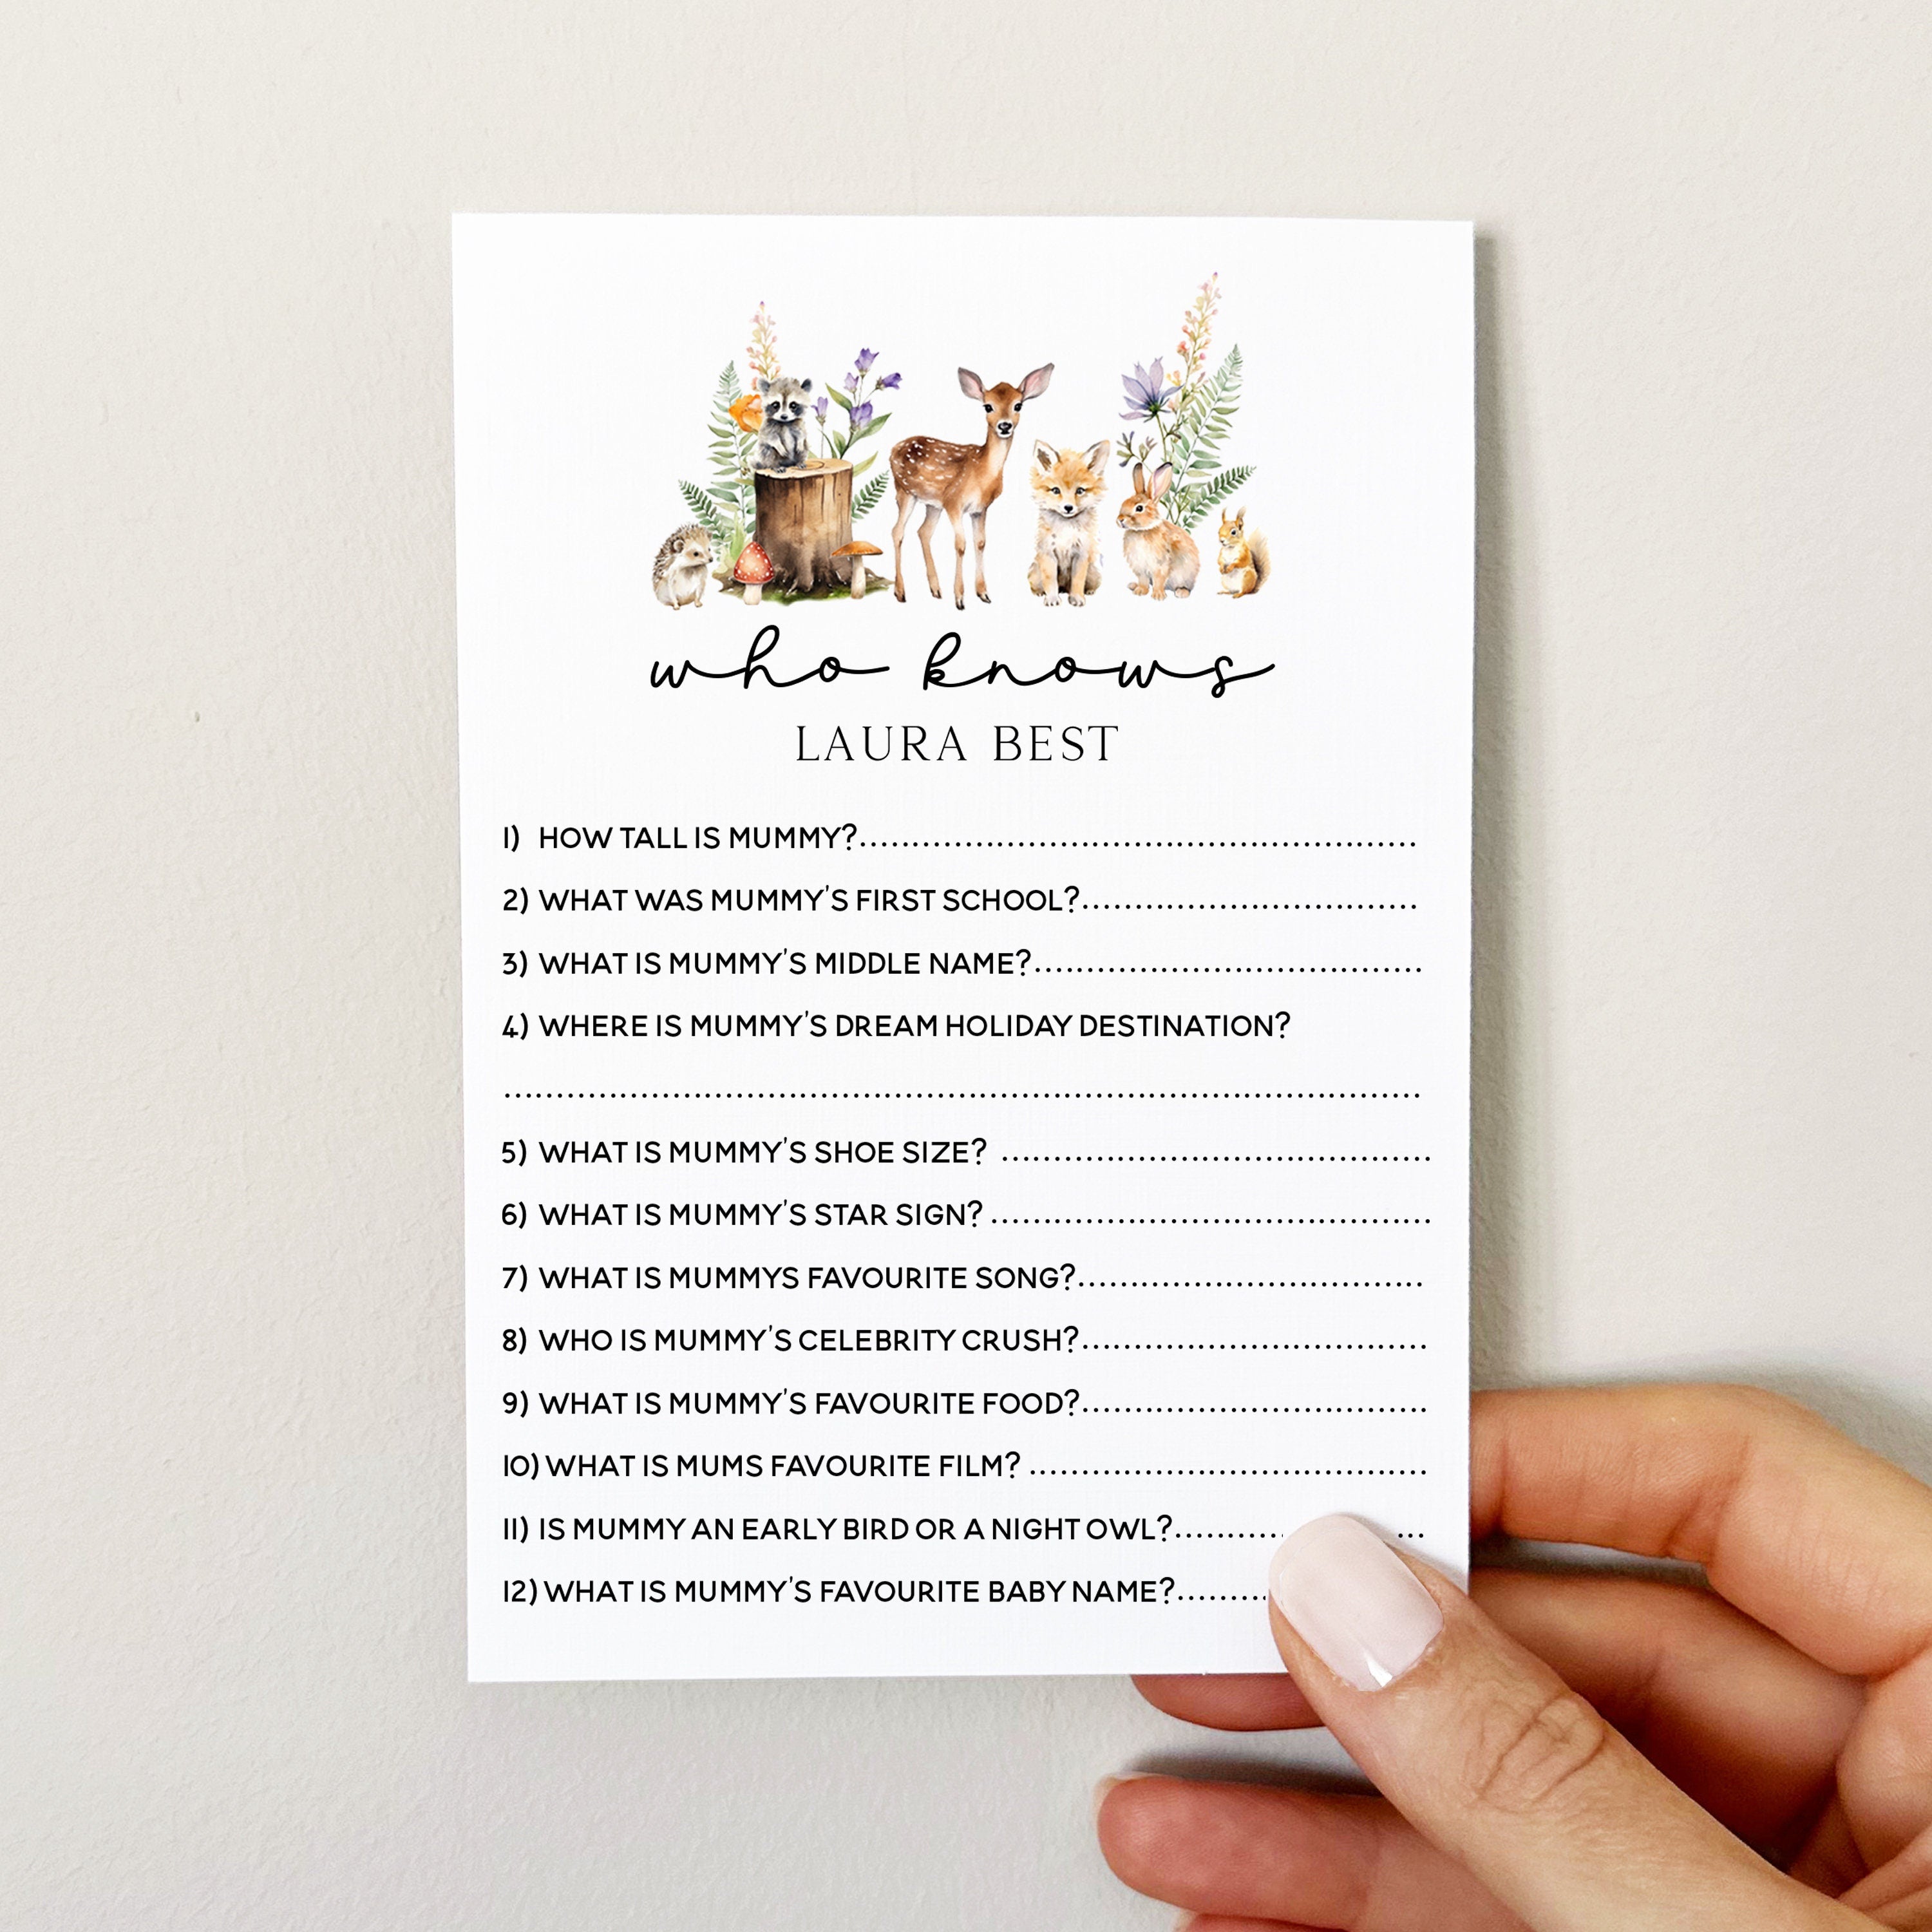 who knows
LAURA BEST
1) HOW TALL IS MUMMY?......................................................
2) WHAT WAS MUMMY'S FIRST SCHOOL?................................
3) WHAT IS MUMMY'S MIDDLE NAME?.....................................
4) WHERE IS MUMMY'S DREAM HOLIDAY DESTINATION?
........................................................................................
5) WHAT IS MUMMY'S SHOE SIZE? .........................................
6) WHAT IS MUMMY'S STAR SIGN? ..........................................
7) WHAT IS MUMMYS FAVOURITE SONG?.................................
8) WHO IS MUMMY'S CELEBRITY CRUSH?.................................
9) WHAT IS MUMMY'S FAVOURITE FOOD?.................................
10) WHAT IS MUMS FAVOURITE FILM? ......................................
11) IS MUMMY AN EARLY BIRD OR A NIGHT OWL?.............
12) WHAT IS MUMMY'S FAVOURITE BABY NAME?.........